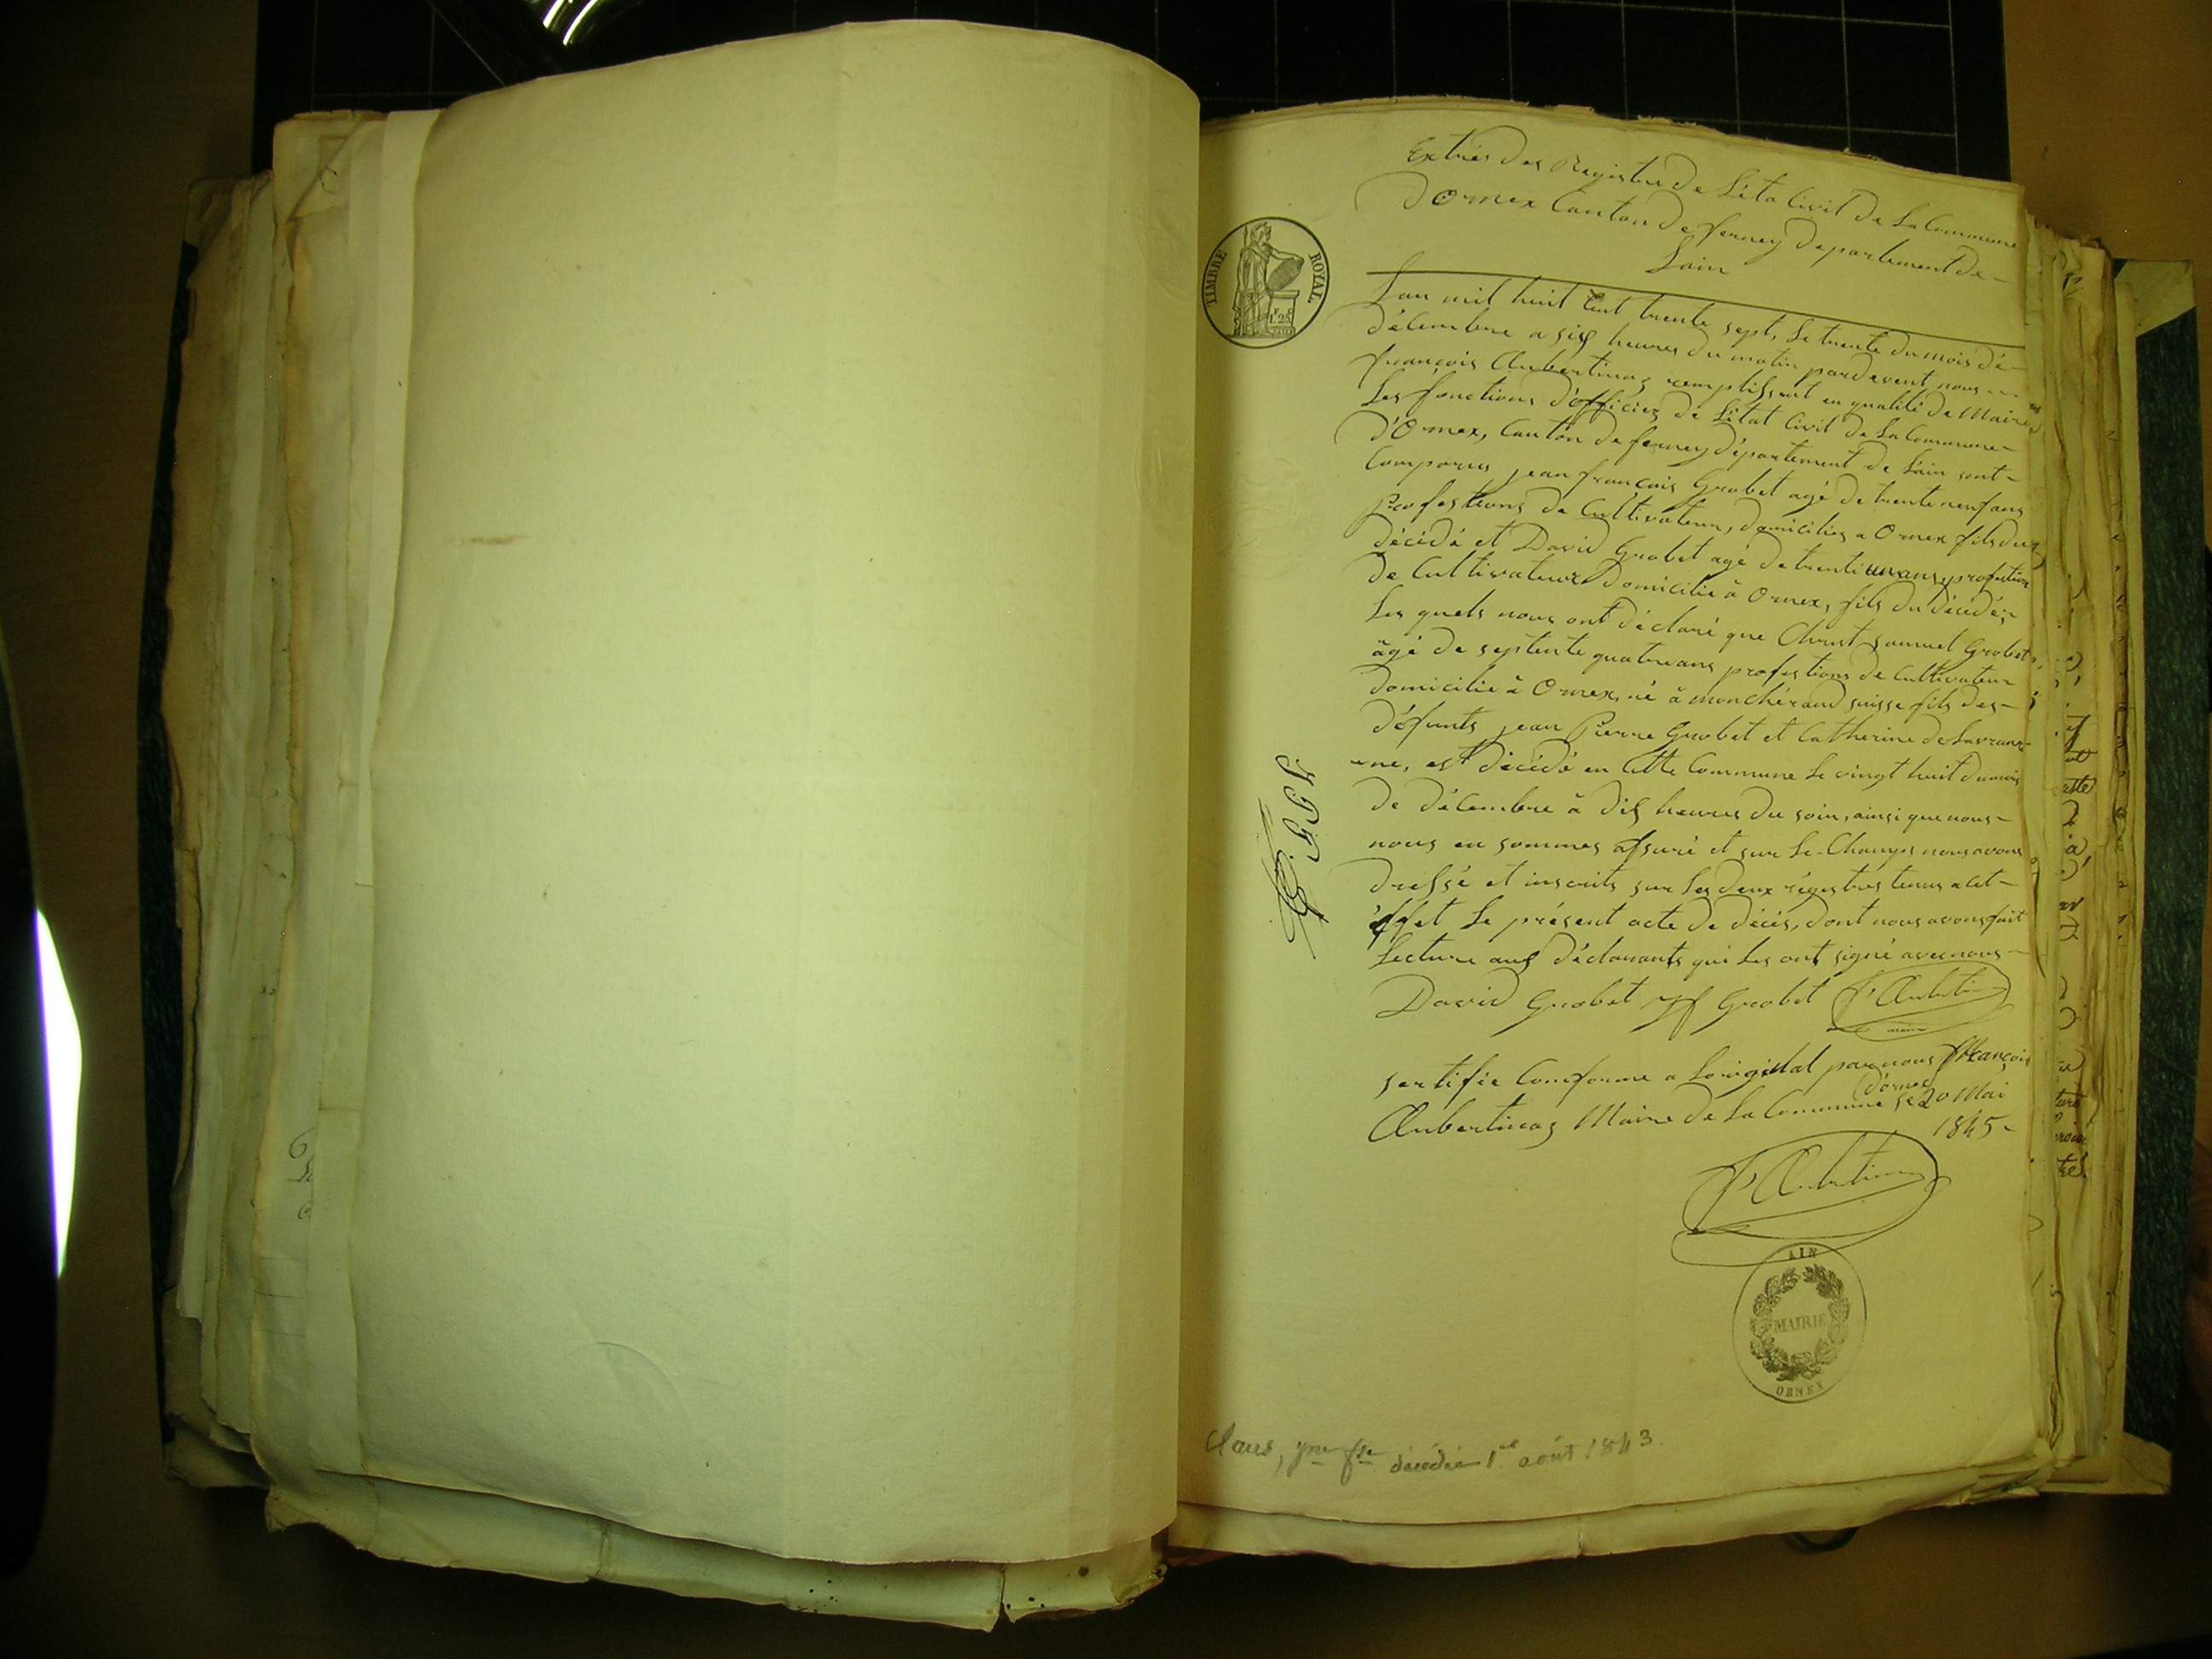 Extrès des Registre de L'éta Civil de La Commune
d'Ornex Canton de ferney departement de
Lain
TIMBRE ROYAL
1.25
Lan mil huit Cent trente sept, Le trente du mois dé-
décembre a six heures du matin pardevent nous
françois Aubertinaz remplissant en qualité de Maire
Les fonctions d'officiez de L'état Civil de La Commune
d'Ornex, Canton de ferney département de L'ain sont
Comparus jean françois Grobet agé de trente neuf ans
professions de Cultivateur, domiciliez a Ornex fils du
décédé et David Grobet agé de trentiunans profestion
de Cultivateur domicilié à Ornex, fils du décédé,
Les quels nous ont déclaré que Christ Samuel Grobet
âgé de septente quatre ans profestions de Cultivateur
domicilié à Ornex, né à monchérand suisse fils des
défunts jean Pierre Grobet et Catherine
est décédé en Cette Commune Le vingt huit du mois
de décembre à dix heures du soir, ainsi que nous
nous en sommes assuré et sur Le Champs nous avons
dressé et inscrits sur Les deux régistres tenus a cet
éffet Le présent acte de décès, dont nous avons fait
Lecture aux déclarants qui Les ont signé avec nous
David Grobet Jf Grobet f. Aubertin
maire
sertifié Conforme a Loriginal par nous françois
Aubertinaz Maire de La Commune d'ornex Le 20 Mai
1845
f. Aubertin
AIN
MAIRIE
ORNEX
décédée 1er août 1843